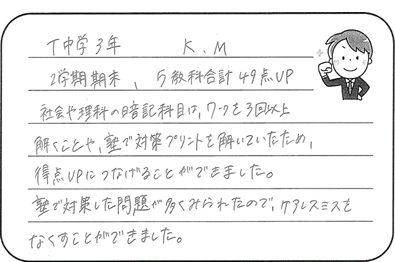 T中学3年 K.M
2学期期末、5教科合計49点UP
社会や理科の暗記科目は、ワークを3回以上
解くことや、塾で対策プリントを解いていたため、
得点UPにつなげることができました。
塾で対策した問題が多くみられたので、ケアレスミスを
なくすことができました。